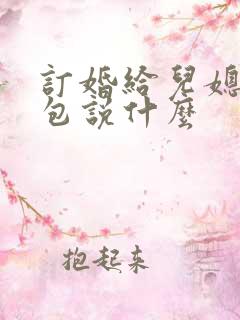 訂婚給兒媳
包說什麼
抱起來